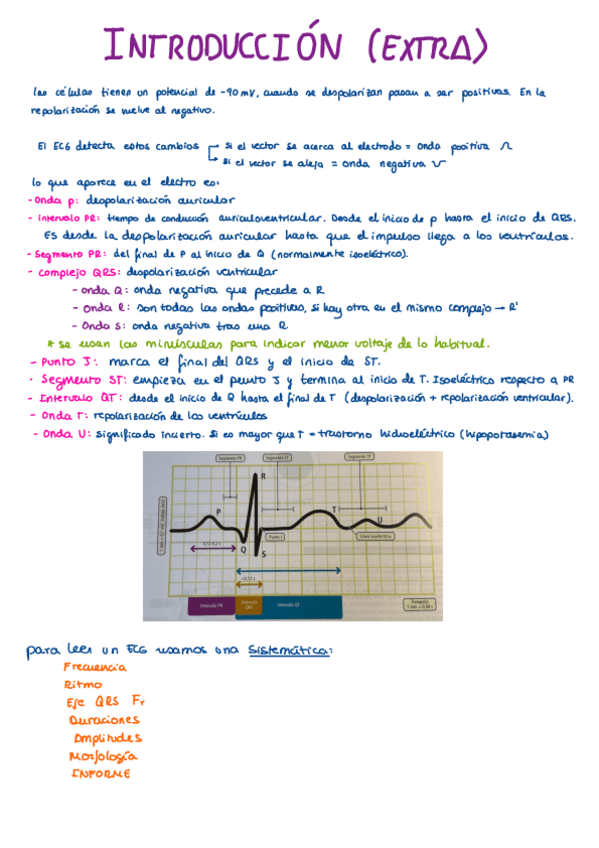 INTRODUCCIÓN (EXTRA)
Las células tienen un potencial de -90 mV, cuando se despolarizan pasan a ser positivas. En la
repolarización se vuelve al negativo.
El ECG detecta estos cambios → si el vector se acerca al electrodo = onda positiva
→ si el vector se aleja = onda negativa
lo que aparece en el electro es:
- Onda p: despolarización auricular
- Intervalo PR: tiempo de conducción auriculoventricular. Desde el inicio de p hasta el inicio de QRS.
Es desde la despolarización auricular hasta que el impulso llega a los ventrículos.
- Segmento PR: del final de P al inicio de Q (normalmente isoeléctrico).
- Complejo QRS: despolarización ventricular
- Onda Q: onda negativa que precede a R
- Onda R: son todas las ondas positivas, si hay otra en el mismo complejo → R'
- Onda S: onda negativa tras una R.
* se usan las minúsculas para indicar menor voltaje de lo habitual.
- Punto J: marca el final del QRS y el inicio de ST.
- Segmento ST: empieza en el punto J y termina al inicio de T. Isoeléctrico respecto a PR
- Intervalo QT: desde el inicio de Q hasta el final de T (despolarización + repolarización ventricular).
- Onda T: repolarización de los ventrículos
- Onda U: significado incierto. Si es mayor que T = trastorno hidroeléctrico (hipopotasemia)
Segmento PR
Segmento ST
Segmento TP
R
P
T
U
Punto J
Línea isoeléctrica
Q
S
0,12-0,2 s
<0,12 s
1 mm = 0,1 mV
Intervalo PR
Intervalo QT
Tiempo:
1 mm = 0,04 s
para leer un ECG usamos una Sistemática:
Frecuencia
Ritmo
Eje QRS Fr
Duraciones
Amplitudes
Morfología
INFORME